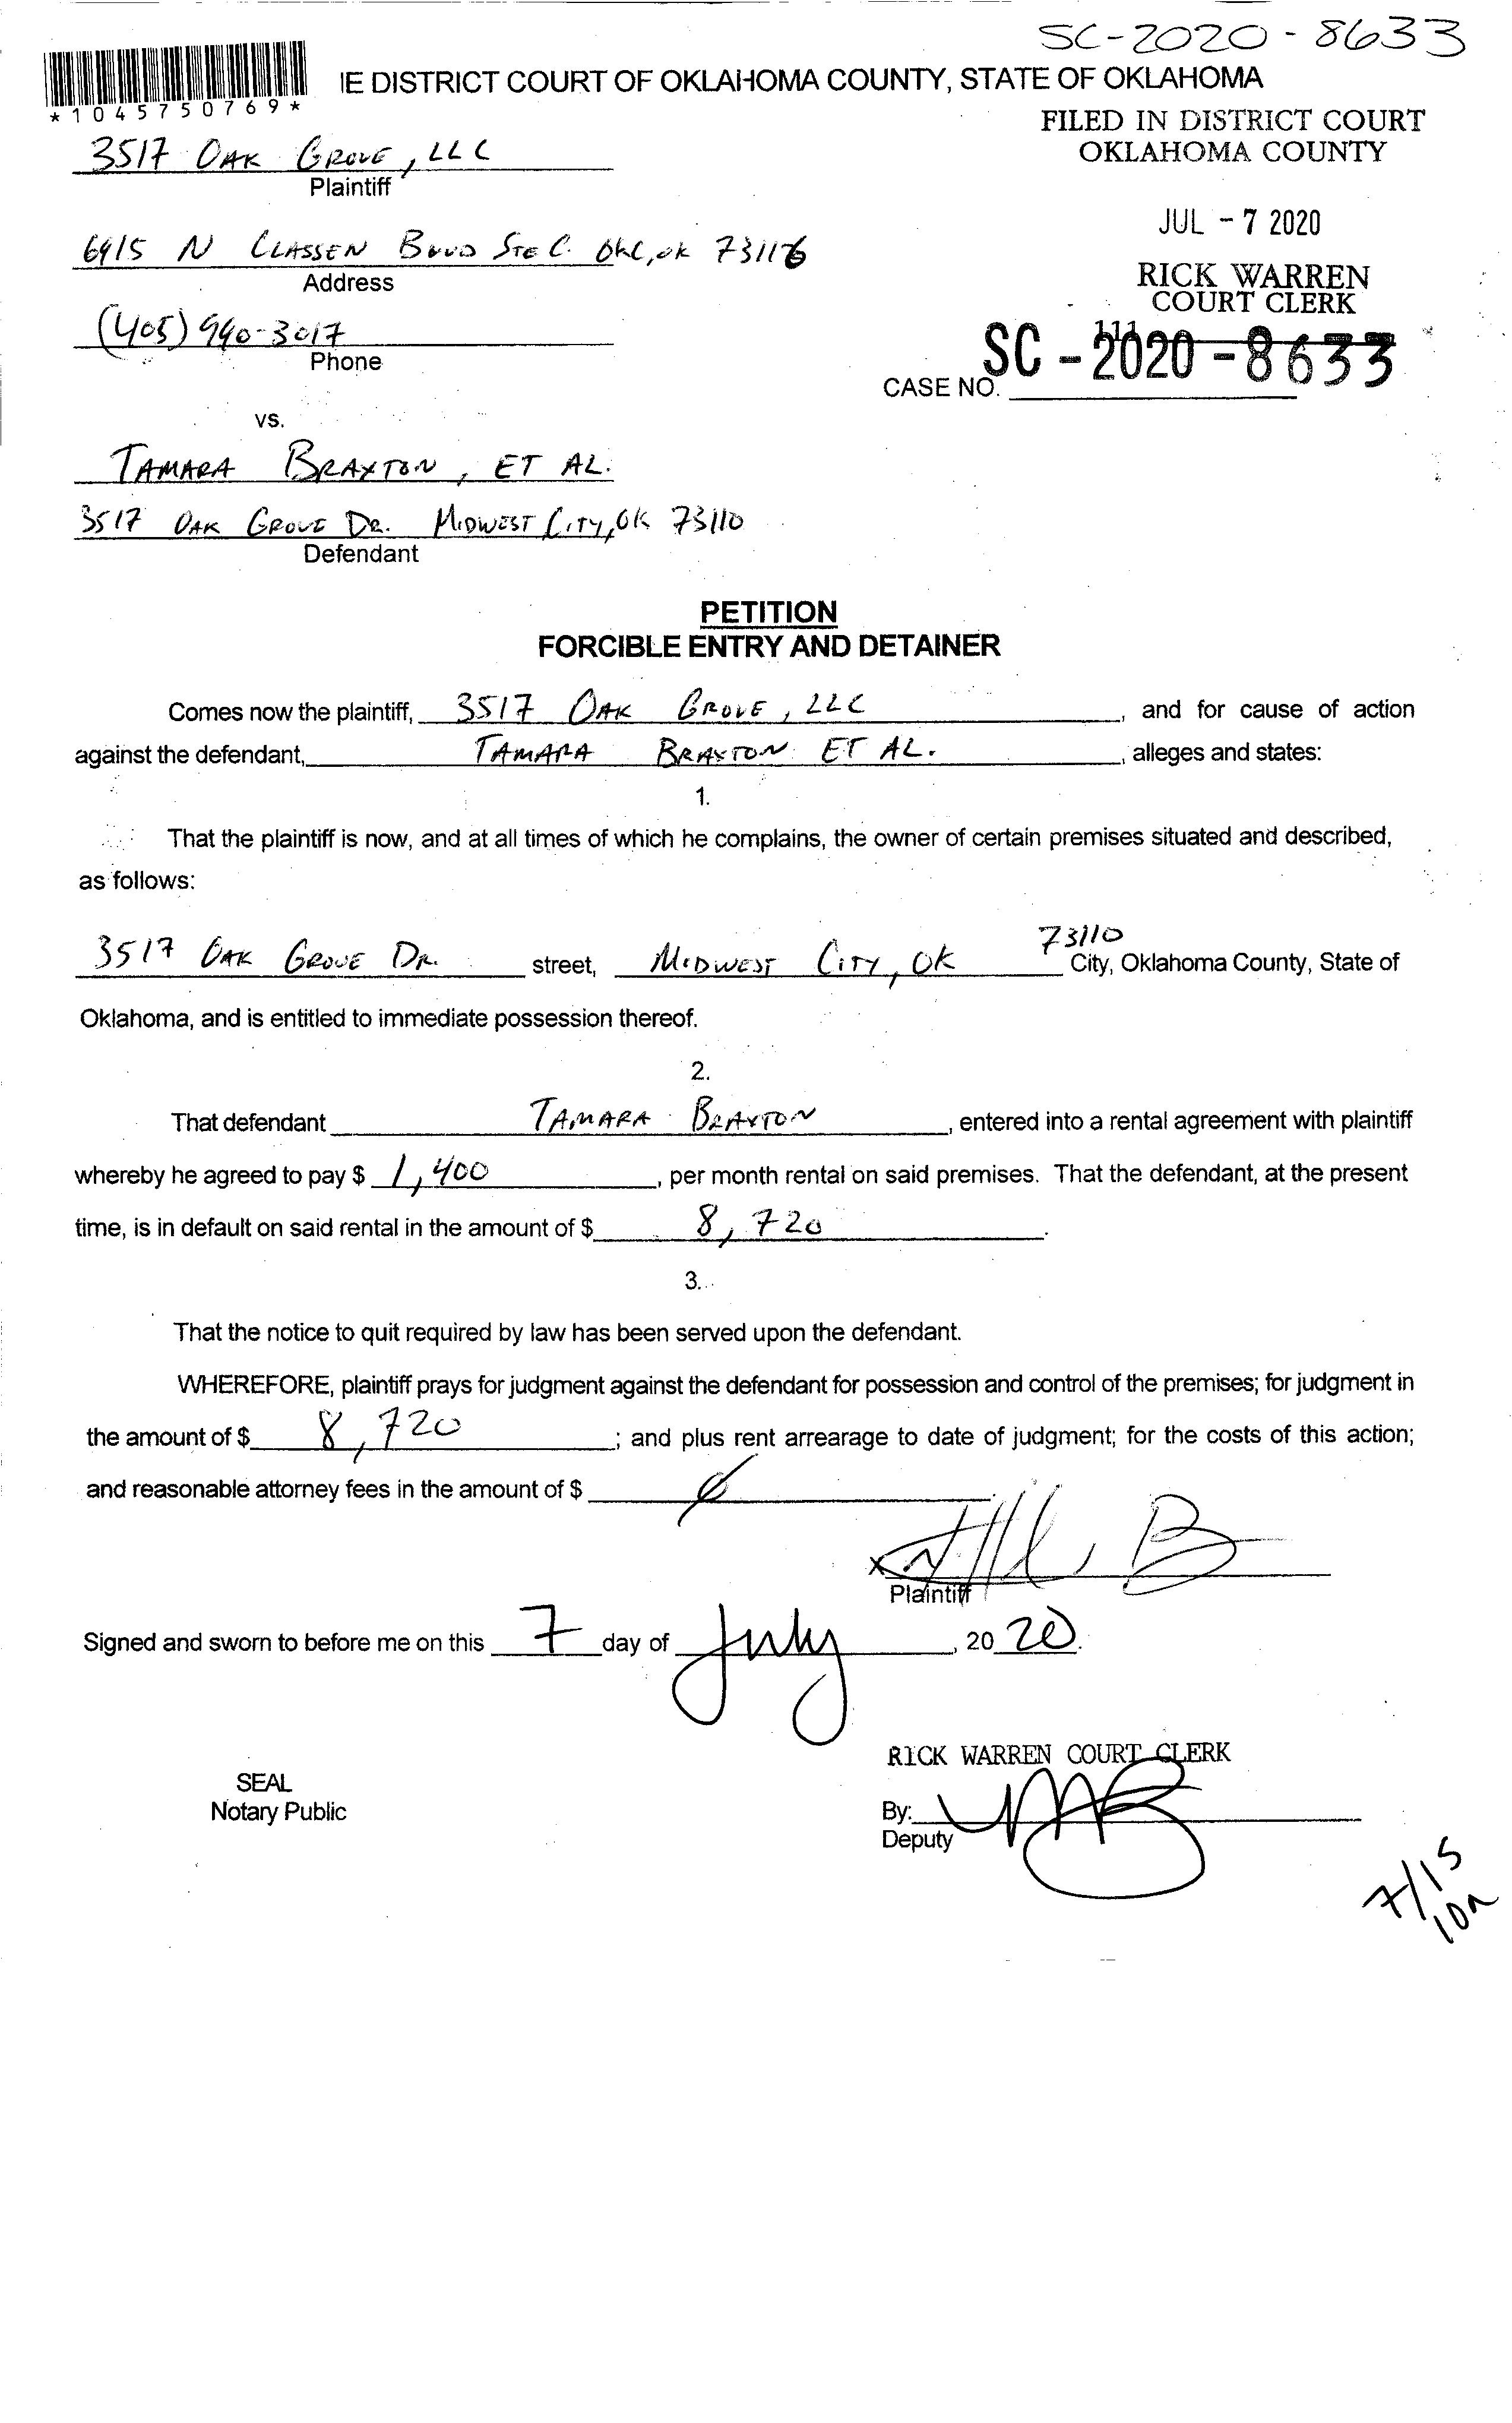 SC-2020-8633
IE DISTRICT COURT OF OKLAHOMA COUNTY, STATE OF OKLAHOMA
*1045750769*
FILED IN DISTRICT COURT
OKLAHOMA COUNTY
3517 OAK GROVE, LLC
Plaintiff
JUL - 7 2020
6915 N CLASSEN BLVD STE C. OKC, OK 73116
Address
RICK WARREN
COURT CLERK
(405) 990-3017
Phone
111
SC - 2020 - 8633
CASE NO.
vs.
TAMARA BRAXTON, ET AL.
3517 OAK GROVE DR. MIDWEST CITY, OK 73110
Defendant
PETITION
FORCIBLE ENTRY AND DETAINER
Comes now the plaintiff, 3517 OAK GROVE, LLC, and for cause of action
against the defendant, TAMARA BRAXTON ET AL., alleges and states:
1.
That the plaintiff is now, and at all times of which he complains, the owner of certain premises situated and described,
as follows:
3517 OAK GROVE DR. street, MIDWEST CITY, OK 73110 City, Oklahoma County, State of
Oklahoma, and is entitled to immediate possession thereof.
2.
That defendant TAMARA BRAXTON, entered into a rental agreement with plaintiff
whereby he agreed to pay $ 1,400, per month rental on said premises. That the defendant, at the present
time, is in default on said rental in the amount of $ 8,720.
3.
That the notice to quit required by law has been served upon the defendant.
WHEREFORE, plaintiff prays for judgment against the defendant for possession and control of the premises; for judgment in
the amount of $ 8,720; and plus rent arrearage to date of judgment; for the costs of this action;
and reasonable attorney fees in the amount of $ ∅.
X
Plaintiff
Signed and sworn to before me on this 7 day of July, 20 20.
RICK WARREN COURT CLERK
SEAL
Notary Public
By:
Deputy
7/15
10a